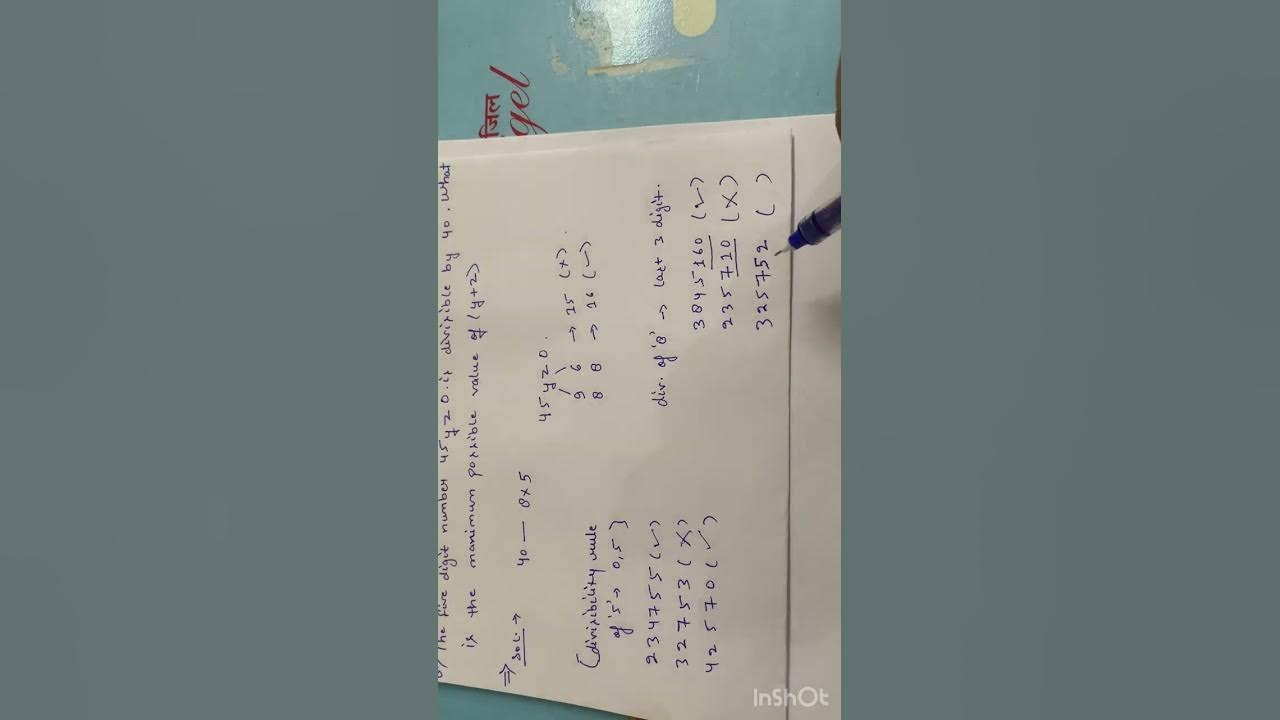 The five digit number 45yz0 is divisible by 40. What
is the maximum possible value of (y+z)
⇒ Sol. → 40 — 8×5
45yz0.
9 6 → 15 (×).
8 8 → 16 (✓)
(divisibility rule
of '5' → 0,5}
234755 (✓)
32753 (×)
42570 (✓)
div. of '8' → last 3 digit.
3845160 (✓)
235710 (×)
325752 ( )
जिल
gel
InShOt